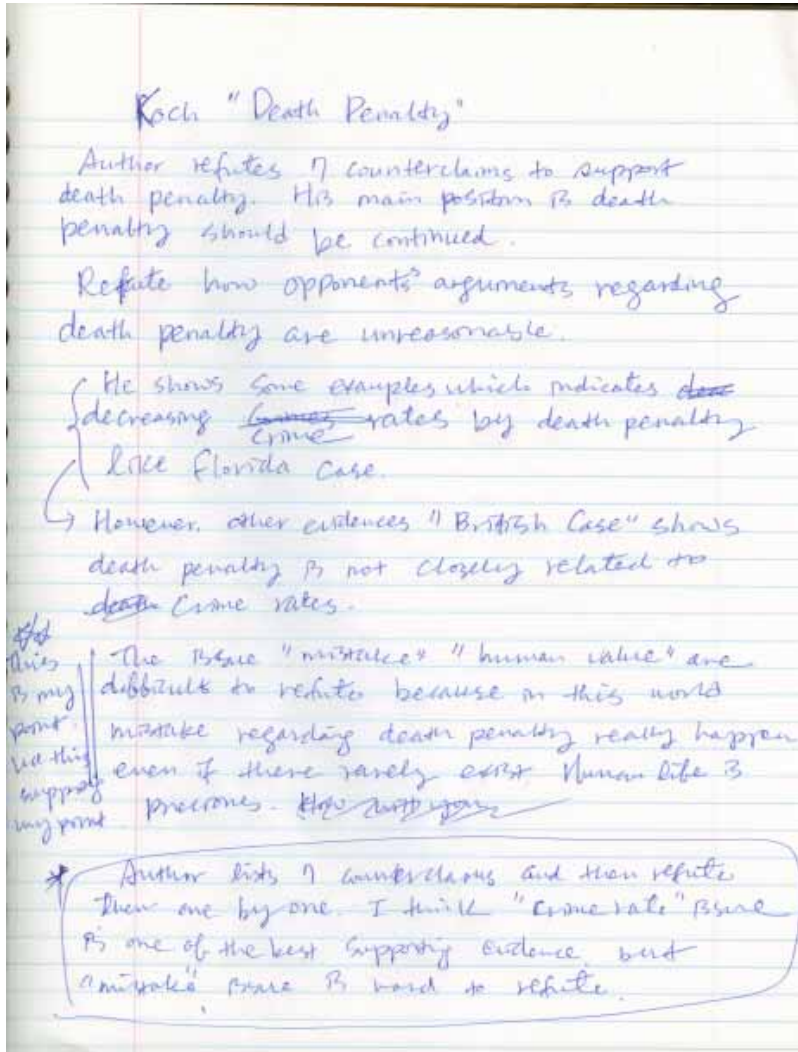 Koch "Death Penalty"
Author refutes 7 counterclaims to support
death penalty. His main position is death
penalty should be continued.
Refute how opponents' arguments regarding
death penalty are unreasonable.
He shows some examples which indicates
decreasing crime rates by death penalty
like Florida case.
However, other evidences "British Case" shows
death penalty is not closely related to
death crime rates.
This
is my
point.
this
my point
The issue "mistake" "human value" are
difficult to refute because in this world
mistake regarding death penalty really happen
even if there rarely exist. Human life is
* Author lists 7 counterclaims and then refute
them one by one. I think "crime rate" issue
is one of the best supporting evidence, but
"mistake" issue is hard to refute.